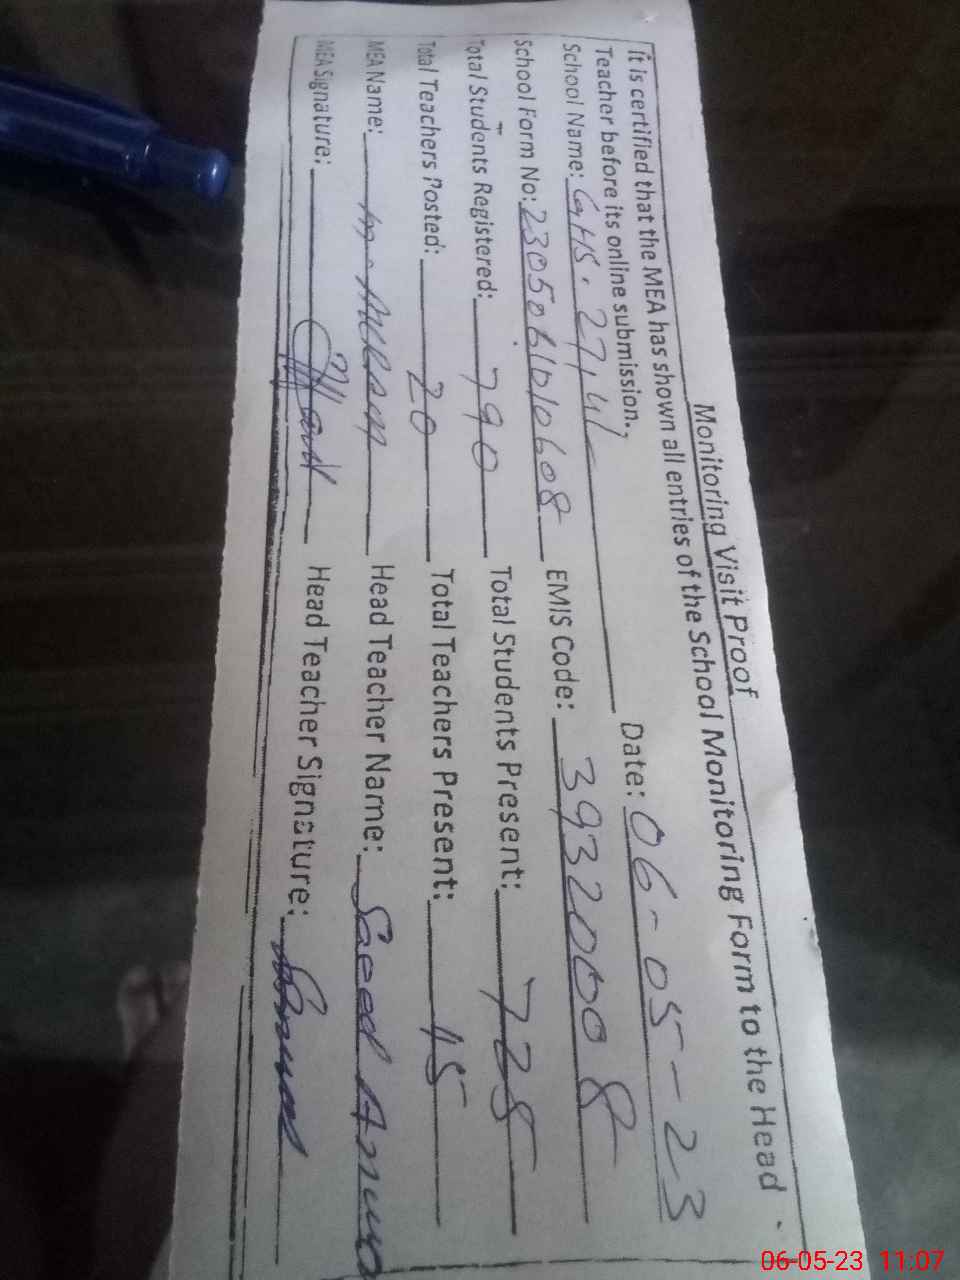 Monitoring Visit Proof
It is certified that the MEA has shown all entries of the School Monitoring Form to the Head
Teacher before its online submission.
Date: 06-05-23
School Name: GHS. 27/4L
School Form No: 2305061010608 EMIS Code: 39320008
Total Students Registered: 790 Total Students Present: 728
Total Teachers Posted: 20 Total Teachers Present: 15
MEA Name: M. Akram Head Teacher Name: Saeed Anwar
MEA Signature: Head Teacher Signature:
06-05-23 11:07